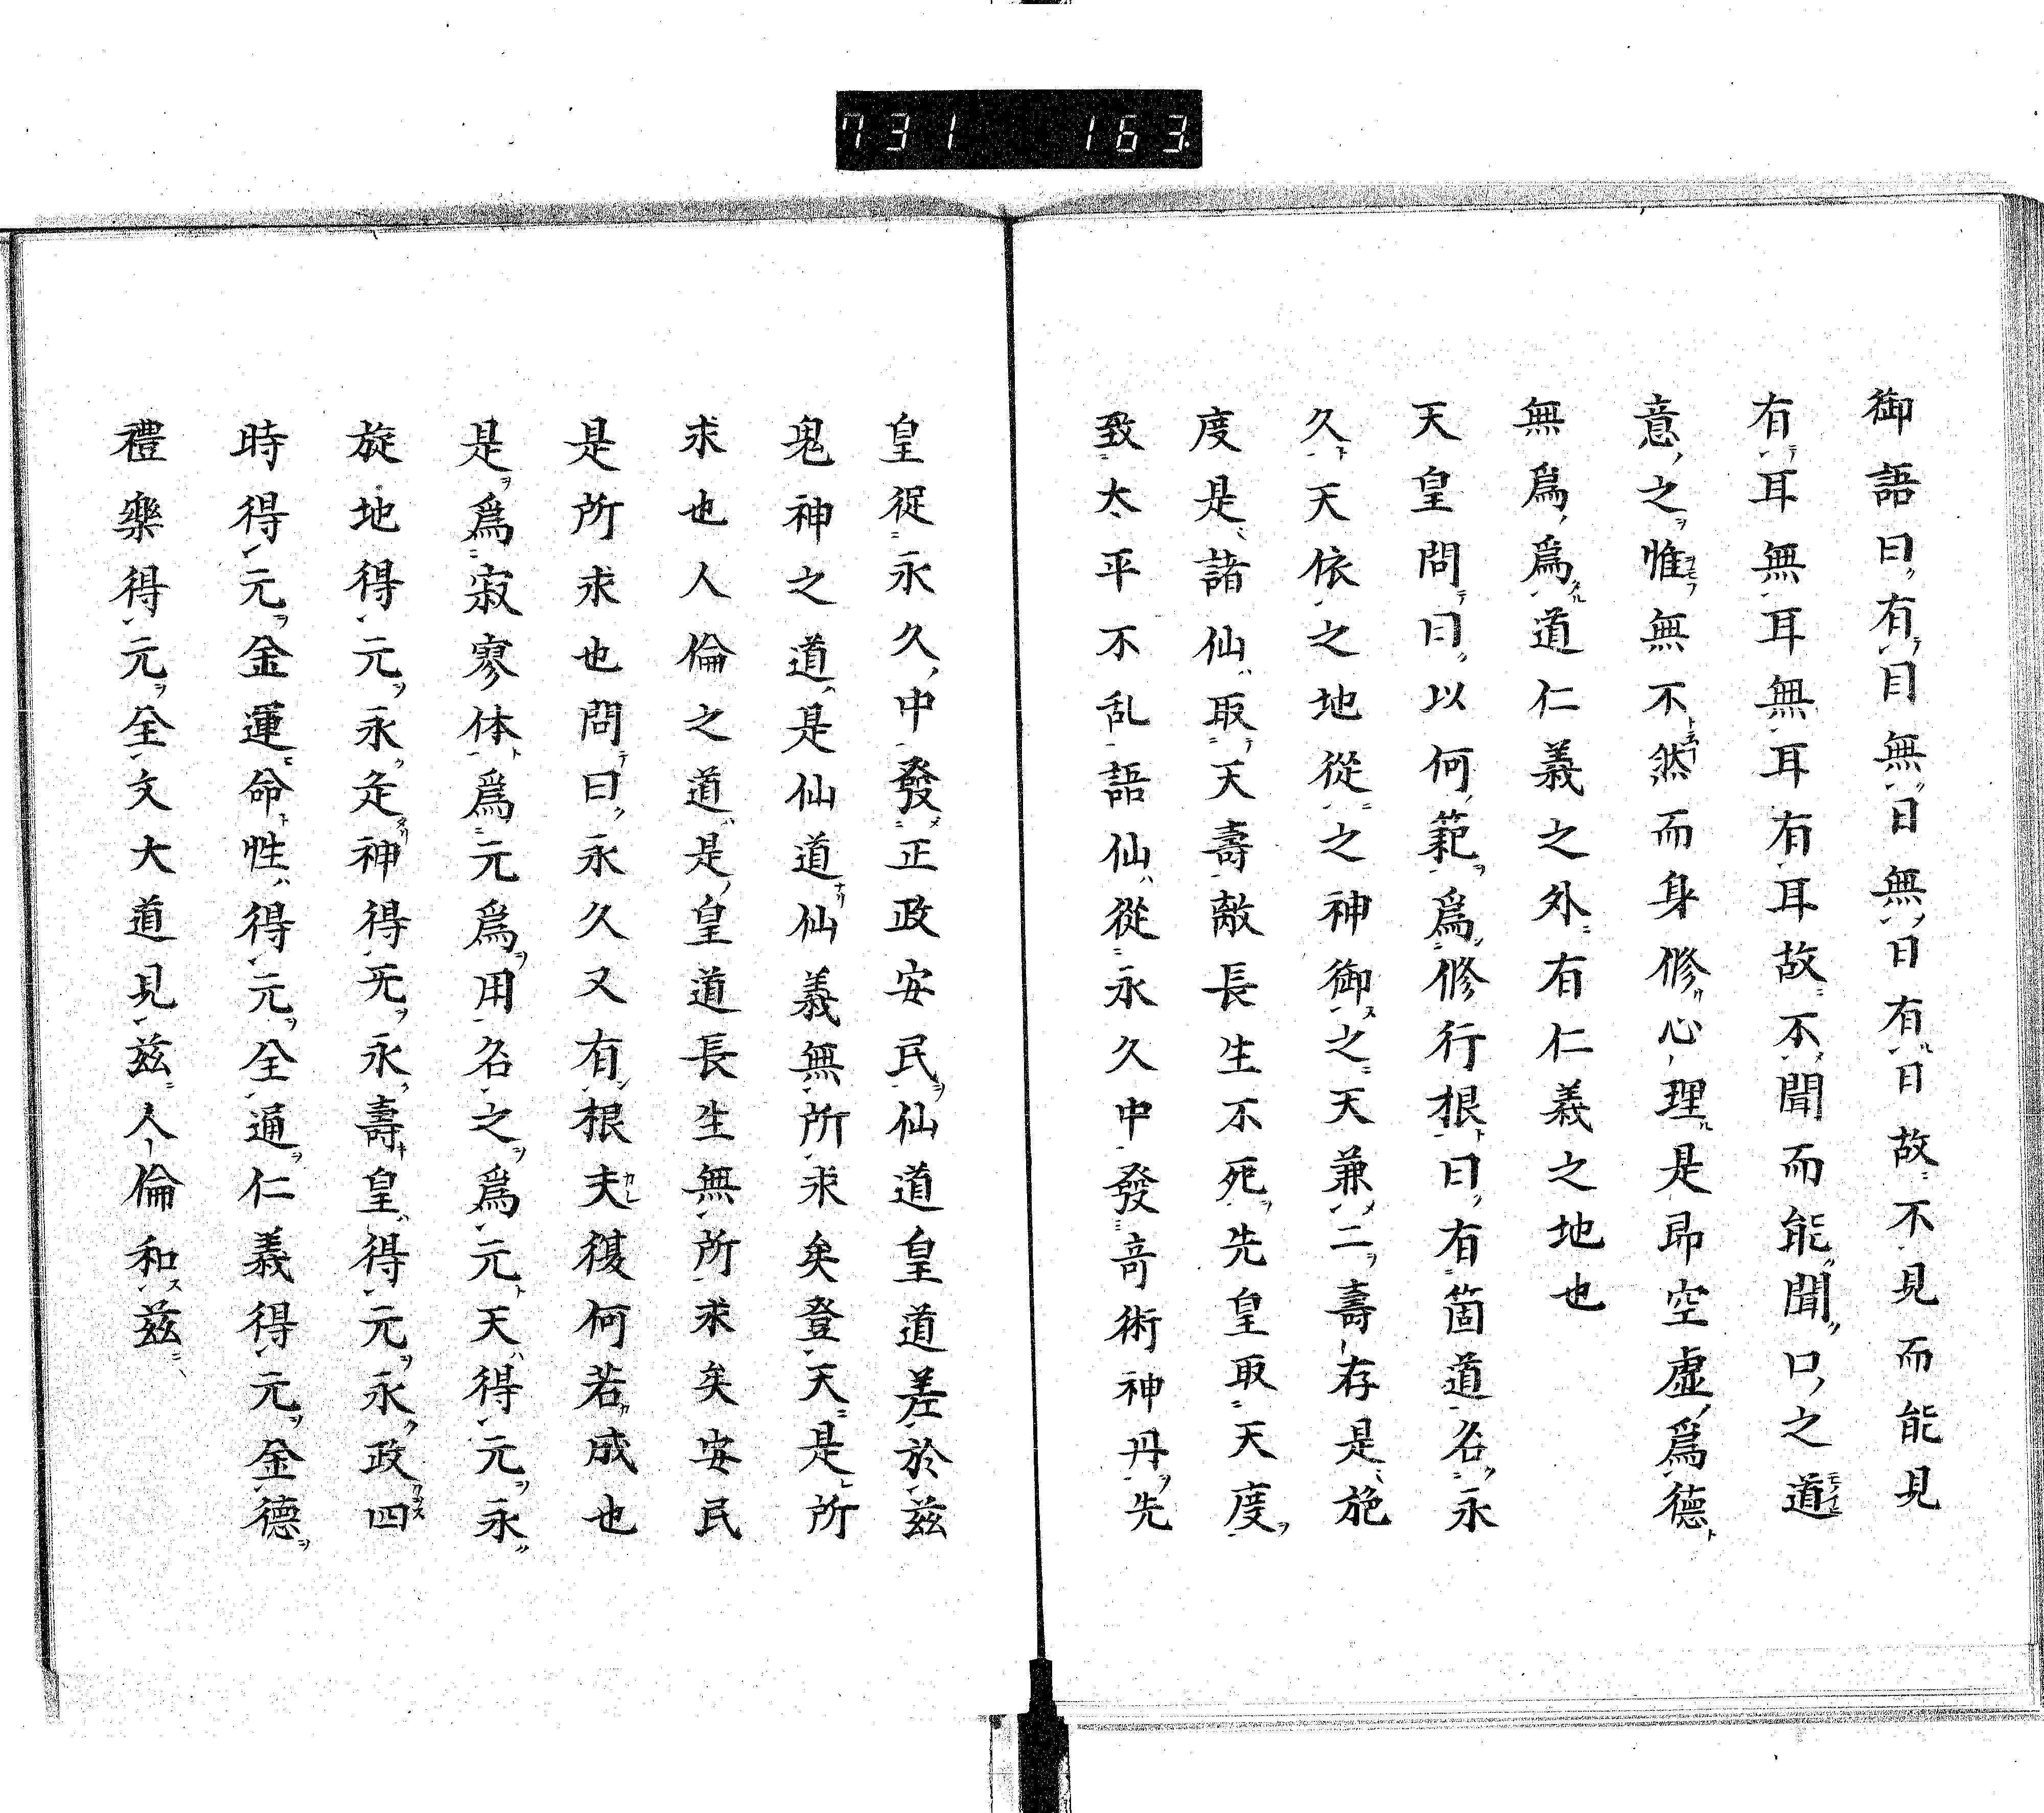 731 163
御語曰有目無目無目有目故不見而能見
有耳無耳無耳有耳故不聞而能聞口之道
意之惟無不然而身修心理是即空虛爲德
無爲爲道仁義之外有仁義之地也
天皇問曰以何範爲修行根曰有箇道名永
久天依之地從之神御之天兼二壽存是施
度是諸仙取天壽敵長生不死先皇取天度
致太平不乱語仙從永久中發竒術神丹先
皇從永久中發正政安民仙道皇道差於兹
鬼神之道是仙道仙義無所求矣登天是所
求也人倫之道是皇道長生無所求矣安民
是所求也問曰永久又有根夫復何若成也
是爲寂寥体爲元爲用名之爲元天得元永
旋地得元永疋神得元永壽皇得元永政四
時得元金運命性得元全通仁義得元金德
禮樂得元全文大道見兹人倫和兹